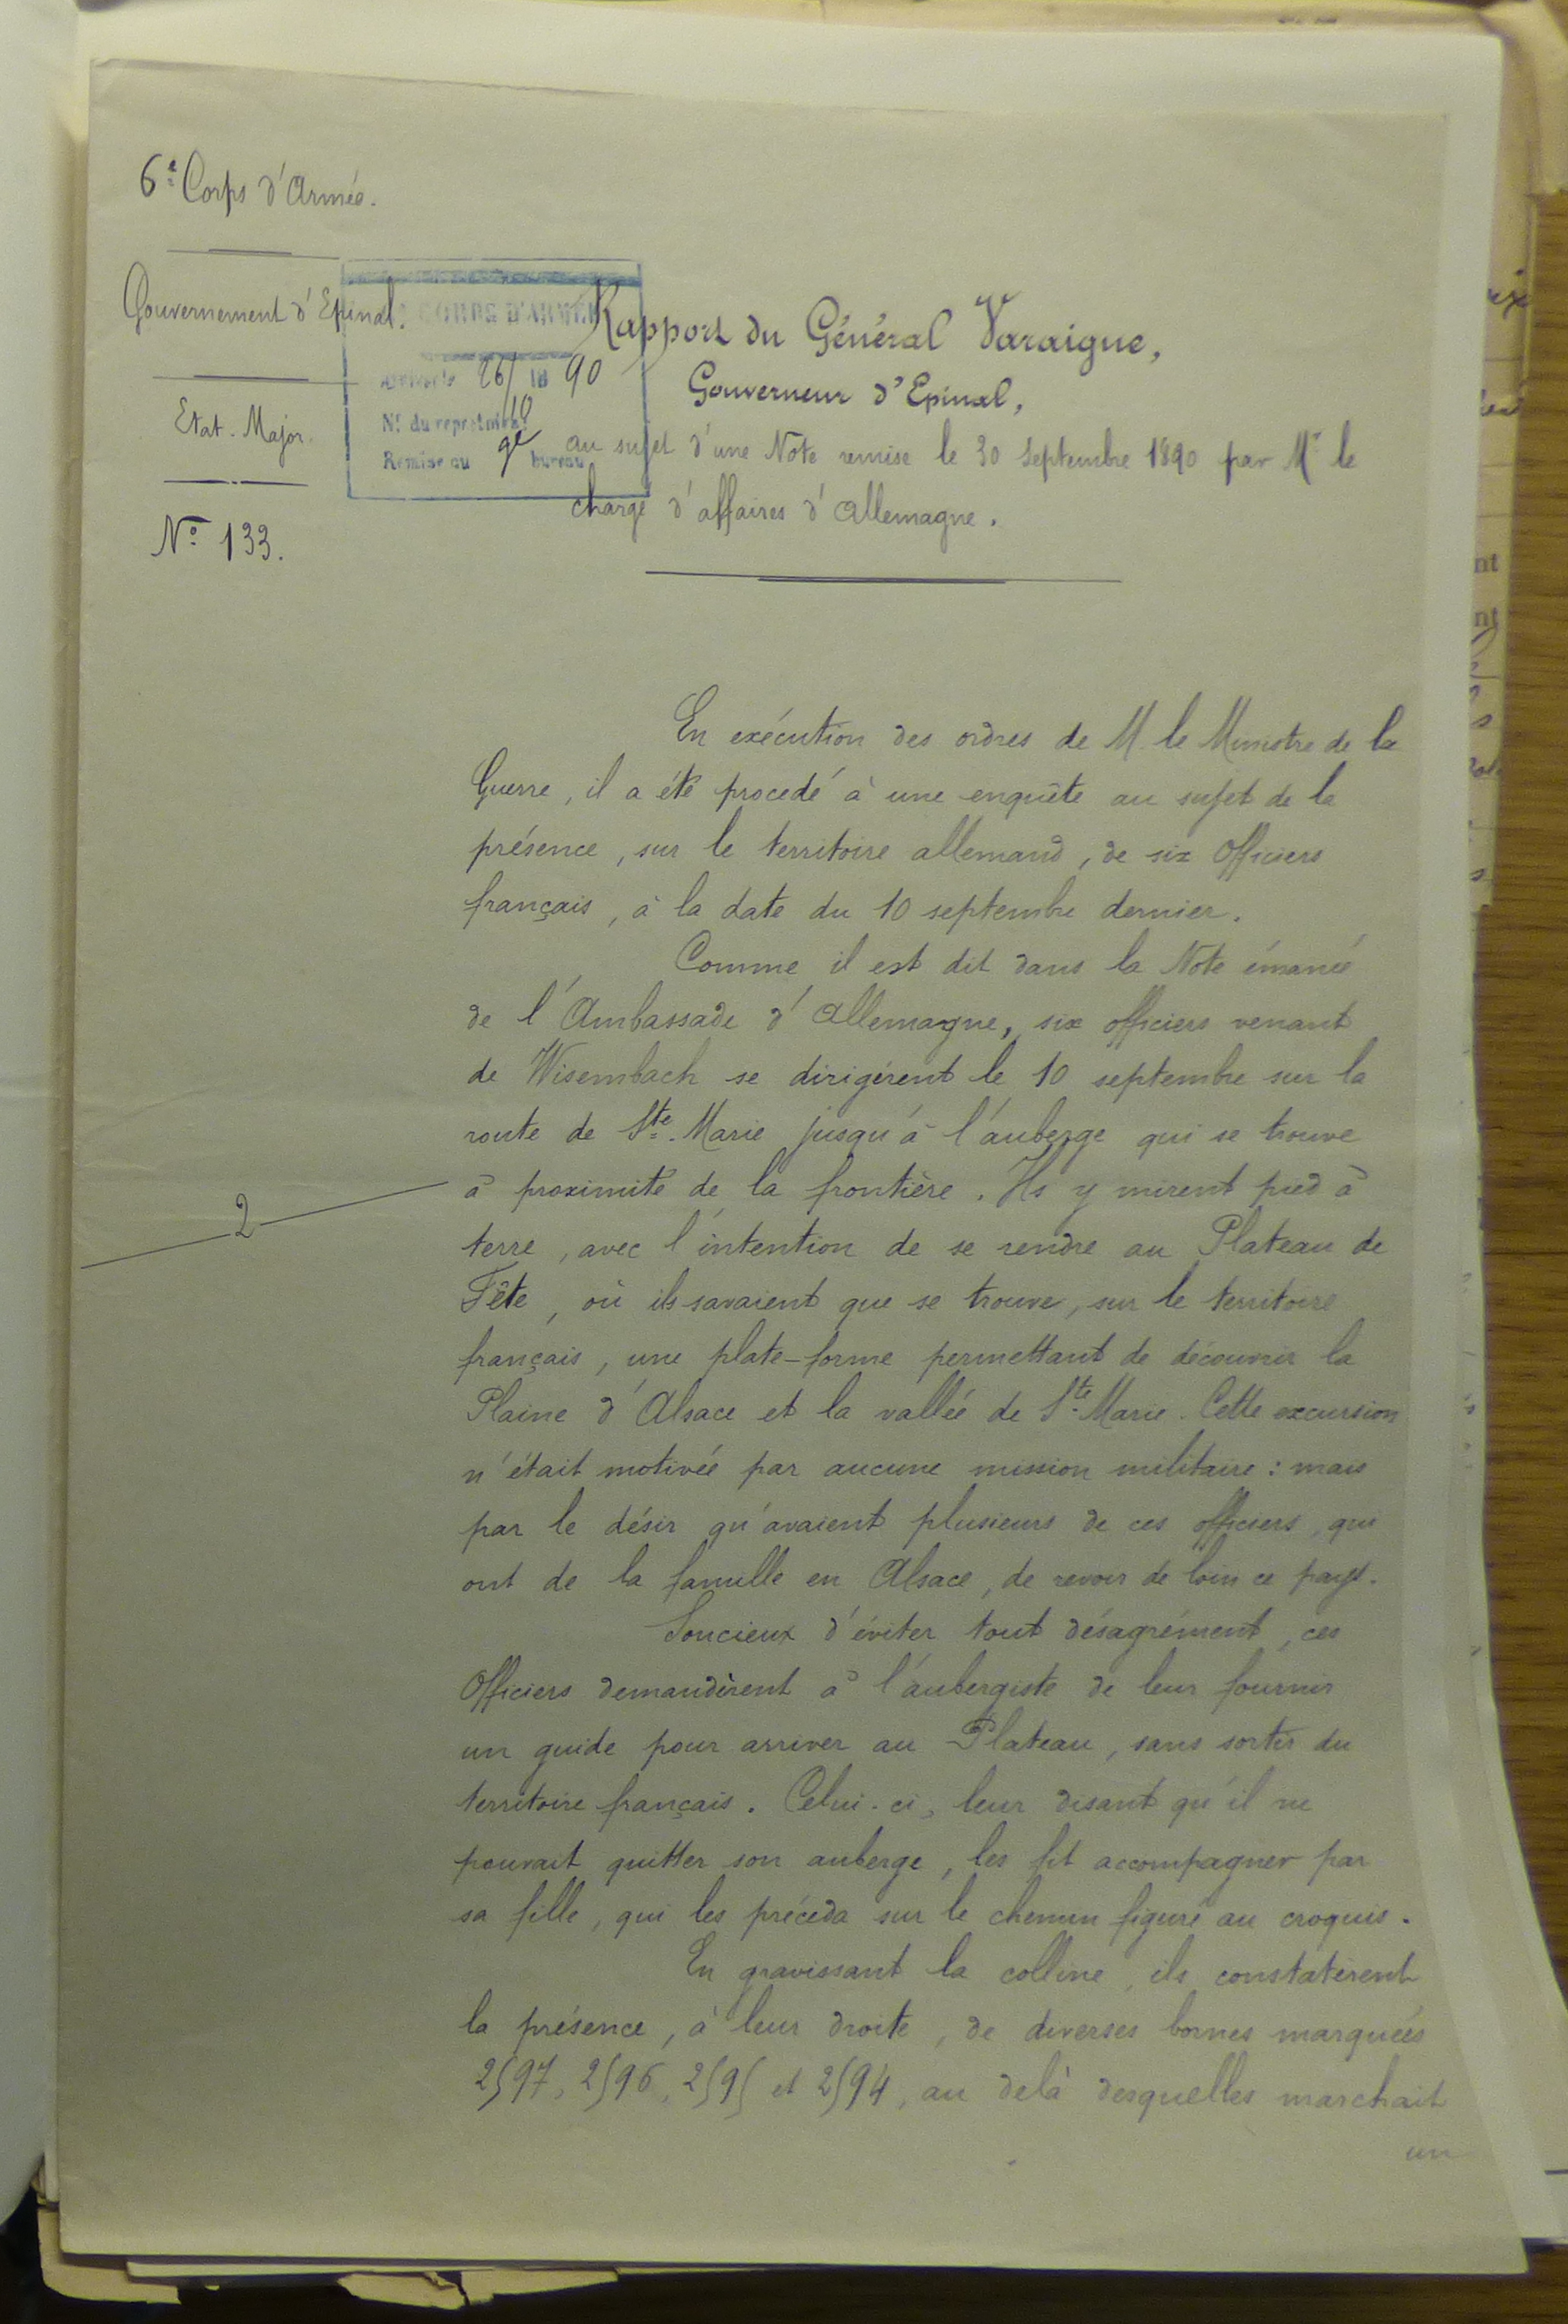 6e Corps d'Armée.
Gouvernement d'Epinal.
Etat-Major.
No 133.
CORPS D'ARMÉE
26/10 18 90
No du répertoire
Remise au bureau
Rapport du Général Varaigne,
Gouverneur d'Epinal,
au sujet d'une Note remise le 30 septembre 1890 par Mr le
chargé d'affaires d'Allemagne.
En exécution des ordres de M. le Ministre de la
Guerre, il a été procédé à une enquête au sujet de la
présence, sur le territoire allemand, de six Officiers
français, à la date du 10 septembre dernier.
Comme il est dit dans la Note émanée
de l'Ambassade d'Allemagne, six officiers venant
de Wisembach se dirigèrent le 10 septembre sur la
route de Ste. Marie jusqu'à l'auberge qui se trouve
à proximité de la frontière. Ils y mirent pied à
2
terre, avec l'intention de se rendre au Plateau de
Fête, où ils savaient que se trouve, sur le territoire
français, une plate-forme permettant de découvrir la
Plaine d'Alsace et la vallée de Ste Marie. Cette excursion
n'était motivée par aucune mission militaire : mais
par le désir qu'avaient plusieurs de ces officiers, qui
ont de la famille en Alsace, de revoir de loin ce pays.
Soucieux d'éviter tout désagrément, ces
Officiers demandèrent à l'aubergiste de leur fournir
un guide pour arriver au Plateau, sans sortir du
territoire français. Celui-ci, leur disant qu'il ne
pouvait quitter son auberge, les fit accompagner par
sa fille, qui les précéda sur le chemin figuré au croquis.
En gravissant la colline, ils constatèrent
la présence, à leur droite, de diverses bornes marquées
2597, 2596, 2595 et 2594, au delà desquelles marchait
un